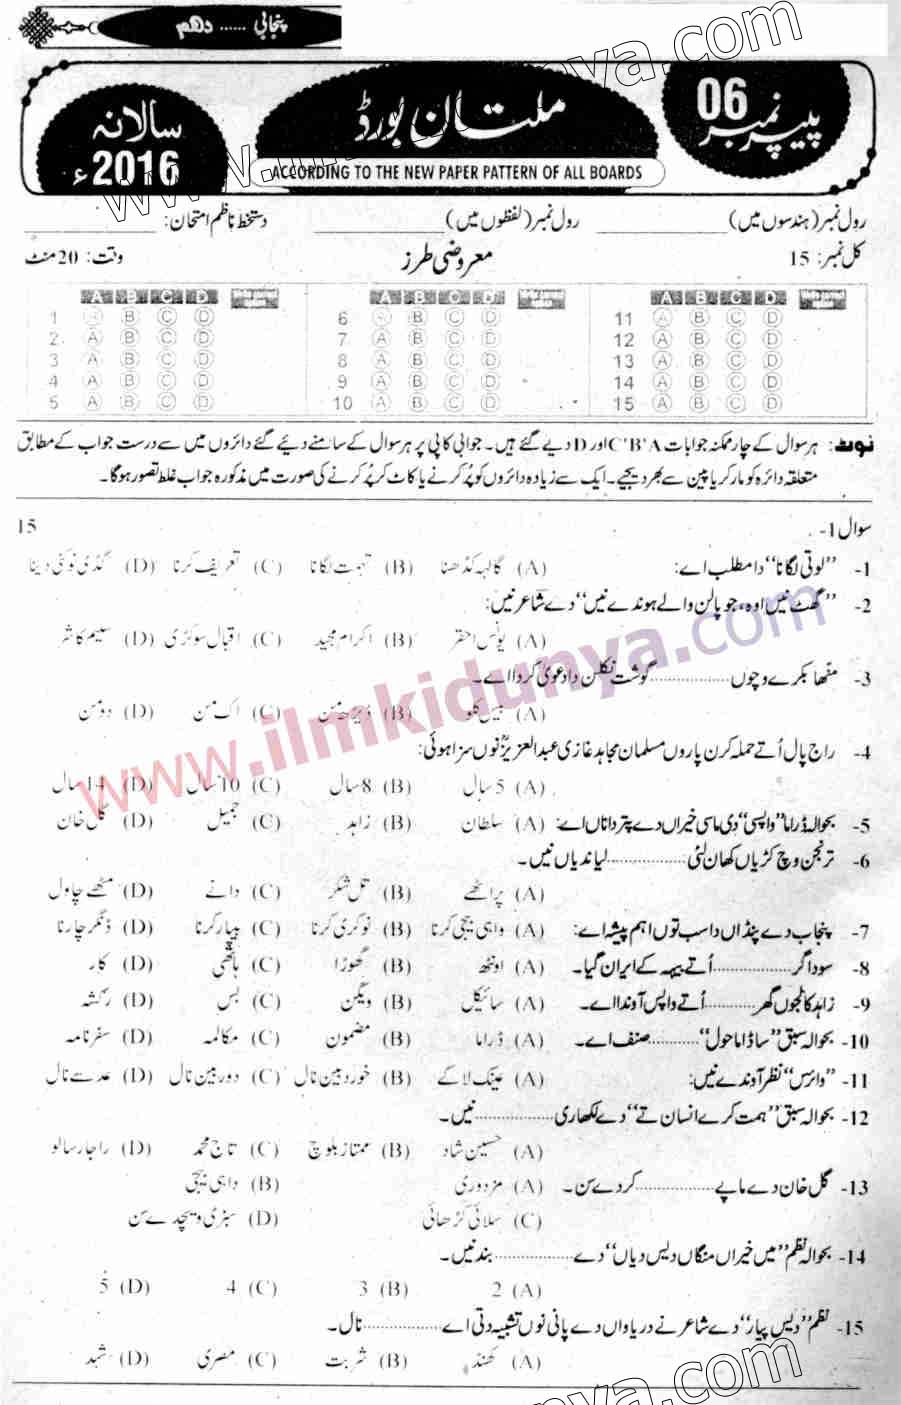 پنجابی ...... دھم
پیپر نمبر 06
ملتان بورڈ
ACCORDING TO THE NEW PAPER PATTERN OF ALL BOARDS
سالانہ 2016ء
رول نمبر (ہندسوں میں) ____________ رول نمبر (لفظوں میں) ____________ دستخط ناظم امتحان: ____________
کل نمبر: 15 معروضی طرز وقت: 20 منٹ
A B C D A B C D A B C D
1 A B C D 6 A B C D 11 A B C D
2 A B C D 7 A B C D 12 A B C D
3 A B C D 8 A B C D 13 A B C D
4 A B C D 9 A B C D 14 A B C D
5 A B C D 10 A B C D 15 A B C D
نوٹ: ہر سوال کے چار ممکنہ جوابات C'B'A اور D دیے گئے ہیں۔ جوابی کاپی پر ہر سوال کے سامنے دیئے گئے دائروں میں سے درست جواب کے مطابق
متعلقہ دائرہ کو مارکر یا پین سے بھر دیجیے۔ ایک سے زیادہ دائروں کو پُر کرنے یا کاٹ کر پُر کرنے کی صورت میں مذکورہ جواب غلط تصور ہوگا۔
سوال 1- 15
1- ”لوتی لگانا“ دا مطلب اے: (A) گالہہ کڈھنا (B) تہمت لگانا (C) تعریف کرنا (D) گڈی نوکنی دینا
2- ”گھٹ نیں اوہ، جو پالن والے ہوندے نیں“ دے شاعر نیں:
(A) یونس احقر (B) اکرام مجید (C) اقبال سوکڑی (D) سلیم کاشر
3- مٹھا بکرے وچوں .................. گوشت نکلن دا دعویٰ کردا اے۔
(A) تیس کلو (B) ڈیڑھ من (C) اک من (D) دو من
4- راج پال اُتے حملہ کرن پاروں مسلمان مجاہد غازی عبدالعزیزؒ نوں سزا ہوئی:
(A) 5 سال (B) 8 سال (C) 10 سال (D) 14 سال
5- بحوالہ ڈراما ”واپسی“ دی ماسی خیراں دے پتر دا ناں اے: (A) سلطان (B) زاہد (C) جمیل (D) گل خان
6- ترنجن وچ کڑیاں کھان لئی .................. لیاندیاں نیں۔
(A) پراٹھے (B) تل شکر (C) دانے (D) مٹھے چاول
7- پنجاب دے پنڈاں دا سب توں اہم پیشہ اے: (A) واہی بیجی کرنا (B) نوکری کرنا (C) بپار کرنا (D) ڈنگر چارنا
8- سوداگر .................. اُتے بیہہ کے ایران گیا۔ (A) اونٹھ (B) گھوڑا (C) ہاتھی (D) کار
9- زاہد کالجوں گھر ............ اُتے واپس آوندا اے۔ (A) سائیکل (B) ویگن (C) بس (D) رکشہ
10- بحوالہ سبق ”ساڈا ماحول“ ............ صنف اے۔ (A) ڈراما (B) مضمون (C) مکالمہ (D) سفرنامہ
11- ”وائرس“ نظر آوندے نیں: (A) عینک لا کے (B) خوردبین نال (C) دوربین نال (D) عدسے نال
12- بحوالہ سبق ”ہمت کرے انسان تے“ دے لکھاری .................. نیں۔
(A) حسین شاد (B) ممتاز بلوچ (C) تاج محمد (D) راجا رسالو
13- گل خان دے ماپے .................. کردے سن۔ (A) مزدوری (B) واہی بیجی
(C) سلائی کڑھائی (D) سبزی ویچدے سن
14- بحوالہ نظم ”میں خیراں منگاں دیس دیاں“ دے .................. بند نیں۔
(A) 2 (B) 3 (C) 4 (D) 5
15- نظم ”دیس پیار“ دے شاعر نے دریاواں دے پانی نوں تشبیہ دتی اے .................. نال۔
(A) کھنڈ (B) شربت (C) مصری (D) شہد
www.ilmkidunya.com